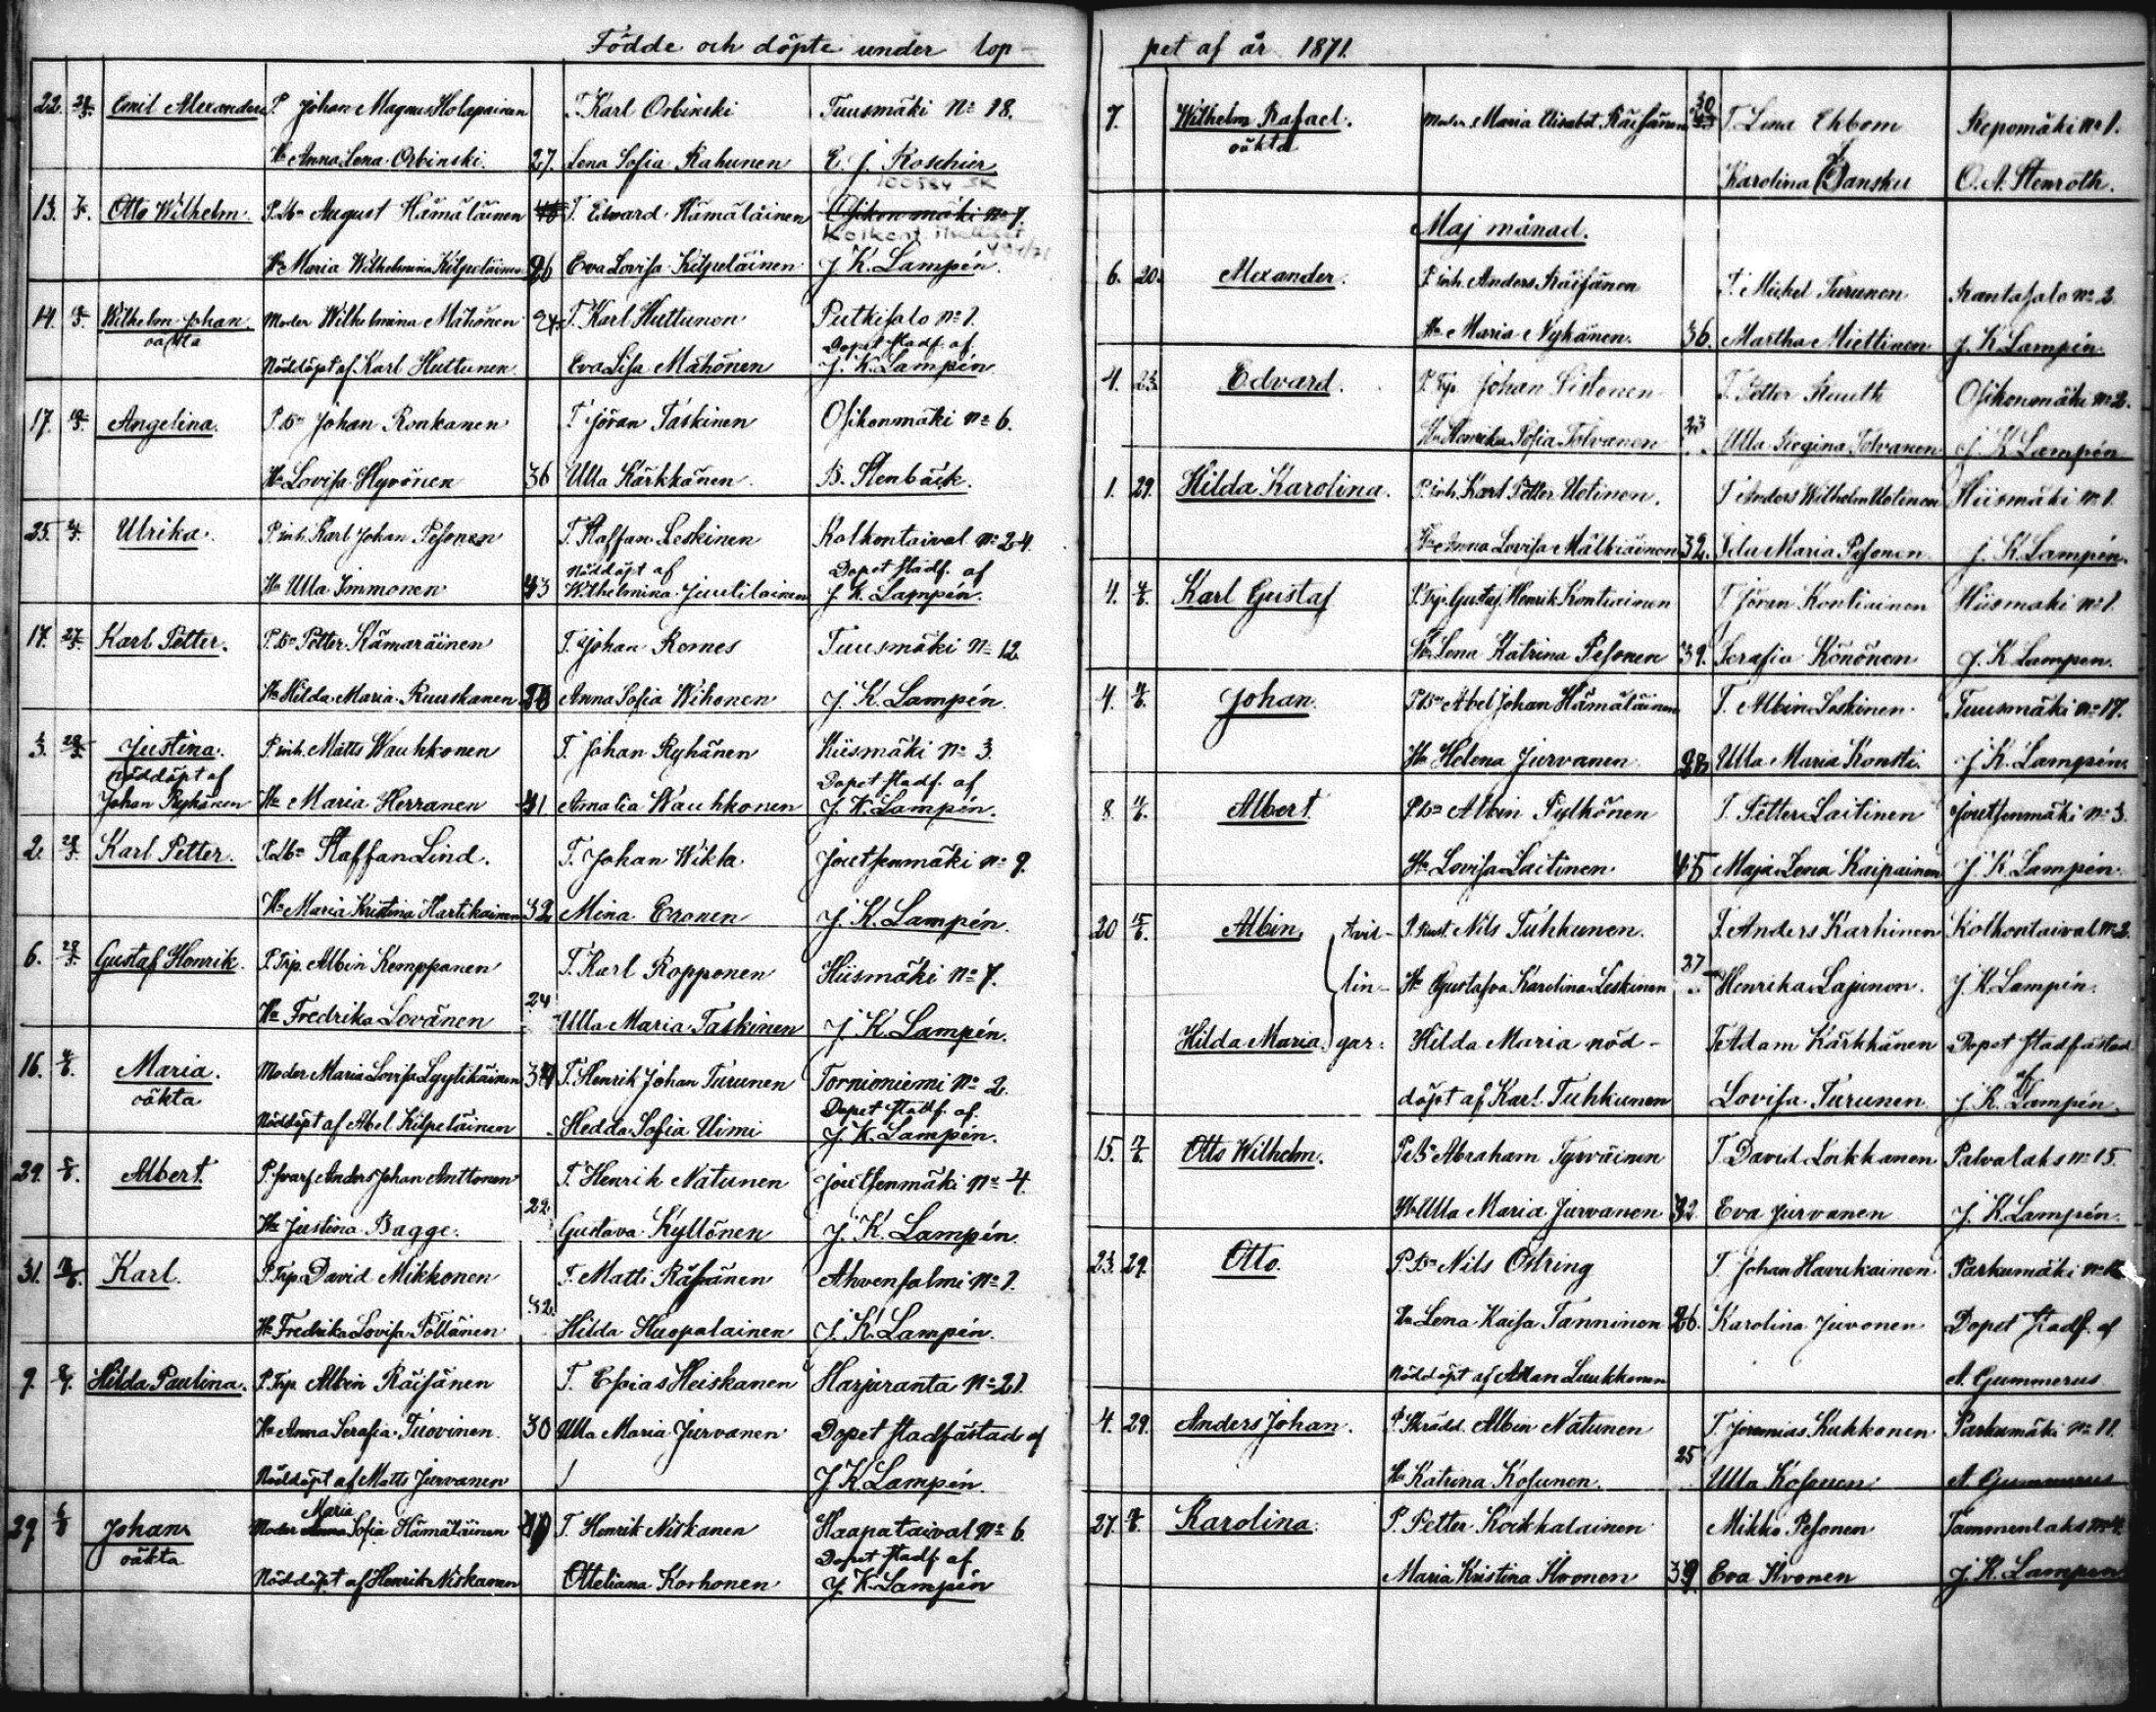 Födde och döpte under lop-
22. Emil Alexander P. Johan Magnus Holopainen T. Karl Orbinski Tuusmäki No 18.
Hu Anna Lena Orbinski. 27. Lena Sofia Rahunen E. J. Roschier
13. Otto Wilhelm. August Hämäläinen T. Edvard Hämäläinen Osikonmäki No 7.
Hu Maria Wilhelmina Kilpeläinen 26 Eva Lovisa Kilpeläinen J. K. Lampén.
14. Wilhelm Johan. Moder Wilhelmina Mähönen 24 T. Karl Huttunen Putkisalo No 1.
oäkta Nöddöpt af Karl Huttunen. Eva Lisa Mähönen Dopet stadf. af J. K. Lampén
17. Angelina. P. Bn Johan Ronkanen T. Jöran Taskinen Osikonmäki No 6.
Hu Lovisa Hyvönen 36 Ulla Kärkkänen. B. Stenbäck.
25. Ulrika. P. inh. Karl Johan Pesonen T. Staffan Leskinen Kolkontaival No 24.
Hu Ulla Immonen 43 Nöddöpt af Wilhelmina Juutilainen Dopet stadf. af J. K. Lampén.
17. 27/5 Karl Petter. P. Bn Petter Kämäräinen T. Johan Romes Tuusmäki No 12
Hu Hilda Maria Ruuskanen Anna Sofia Wihonen J. K. Lampén.
3. 28/5 Justina. P. inh. Matts Wauhkonen T. Johan Ryhänen Hiismäki No 3.
nöddöpt af Johan Ryhänen Hu Maria Herranen 41 Amalia Wauhkonen Dopet stadf. af J. K. Lampén.
2. 28/5 Karl Petter. Staffan Lind. T. Johan Wikla Joutsenmäki No 9.
Hu Maria Kristina Hartikainen 32 Mina Eronen J. K. Lampén.
6. 28/5 Gustaf Henrik. P. Trp. Albin Kemppanen T. Karl Ropponen Hiismäki No 7.
Hu Fredrika Lovänen 24 Ulla Maria Taskinen J. K. Lampén.
16. 4/6. Maria. Moder Maria Lovisa Lyytikäinen T. Henrik Johan Turunen Tornioniemi No 2.
oäkta Nöddöpt af Abel Kilpeläinen Hedda Sofia Uimi Dopet stadf. af. J. K. Lampén.
29. Albert. Anders Johan Anttonen T. Henrik Natunen Joutsenmäki No 4.
Hu Justina Bagge. 22 Gustava Kyllönen J. K. Lampén.
31. Karl. P. Trp. David Mikkonen T. Matti Räsänen Ahvensalmi No 1.
Hu Fredrika Lovisa Pöllänen 32. Hilda Huopalainen J. K. Lampén.
9. Hilda Paulina. P. Trp. Albin Räisänen T. Esaias Heiskanen Harjuranta No 21.
Hu Anna Serafia Tuovinen. 30 Ulla Maria Jurvanen Dopet stadfästad af
Nöddöpt af Matts Jurvanen J. K. Lampén.
29 Johan Moder Maria Sofia Hämäläinen T. Henrik Niskanen Haapataival No 6.
oäkta Nöddöpt af Henrik Niskanen Otteliana Korhonen Dopet stadf. af J. K. Lampén
pet af år 1871.
7. Wilhelm Rafael. Moder Maria Elisabet Räisänen 30 T. Lena Ekbom Repomäki No 1.
oäkta Karolina Dansku O. A. Stenroth.
Maj månad.
6. 20. Alexander. P. inh. Anders Räisänen T. Mickel Turunen Rantasalo No 2.
Hu Maria Nykänen. 36. Martha Miettinen J. K. Lampén.
4. 23. Edvard. P. Trp. Johan Sistonen T. Petter Knuth Osikonmäki No 2.
Hu Henrika Sofia Tolvanen 23 Ulla Regina Tolvanen J. K. Lampén
1. 29. Hilda Karolina. P. inh. Karl Petter Uotinen. T. Anders Wilhelm Uotinen Hiismäki No 1.
Hu Anna Lovisa Mälkiäinen 32. Ida Maria Pesonen J. K. Lampén.
4. 4/6. Karl Gustaf P. Trp. Gustaf Henrik Kontiainen T. Jöran Kontiainen Hiismäki No 1.
Hu Lena Katrina Pesonen 39. Serafia Könönen J. K. Lampen.
4. 4/6. Johan. P. Bn Abel Johan Hämäläinen T. Albin Leskinen. Tuusmäki No 17.
Hu Helena Jurvanen 28 Ulla Maria Kontti. J. K. Lampén.
8. 4/6. Albert P. Bn Albin Pylkönen T. Petter Laitinen Joutsenmäki No 3.
Hu Lovisa Laitinen 45 Maja Lena Kaipainen J. K. Lampén.
20 15/6. Albin, tvil- Nils Tuhkunen. T. Anders Karhinen Kolkontaival No 2.
lin- Hu Gustafva Karolina Leskinen 37 Henrika Lajunen. J. K. Lampén.
Hilda Maria. gar. Hilda Maria nöd- T. Adam Kärkkänen Dopet stadfästad
döpt af Karl Tuhkunen Lovisa Turunen af J. K. Lampén.
15. Otto Wilhelm. Abraham Tyrväinen T. David Loikkanen Palvalaks No 15.
Hu Ulla Maria Jurvanen 32. Eva Jurvanen J. K. Lampén.
23. 29. Otto. P. Bn Nils Östring T. Johan Havukainen Parkumäki
Hu Lena Kaisa Tanninen 26. Karolina Juvonen Dopet stadf. af
Nöddöpt af Adam Luukkonen A. Gummerus
4. 29. Anders Johan. P. Skrädd. Albin Natunen T. Jeremias Kuhkonen Parkumäki No 11.
Hu Katrina Kosunen. 25 Ulla Kosonen A. Gummerus
27. Karolina. P. Petter Koikkalainen Mikko Pesonen Tammenlaks
Maria Kristina Ikonen 39. Eva Ikonen J. K. Lampén